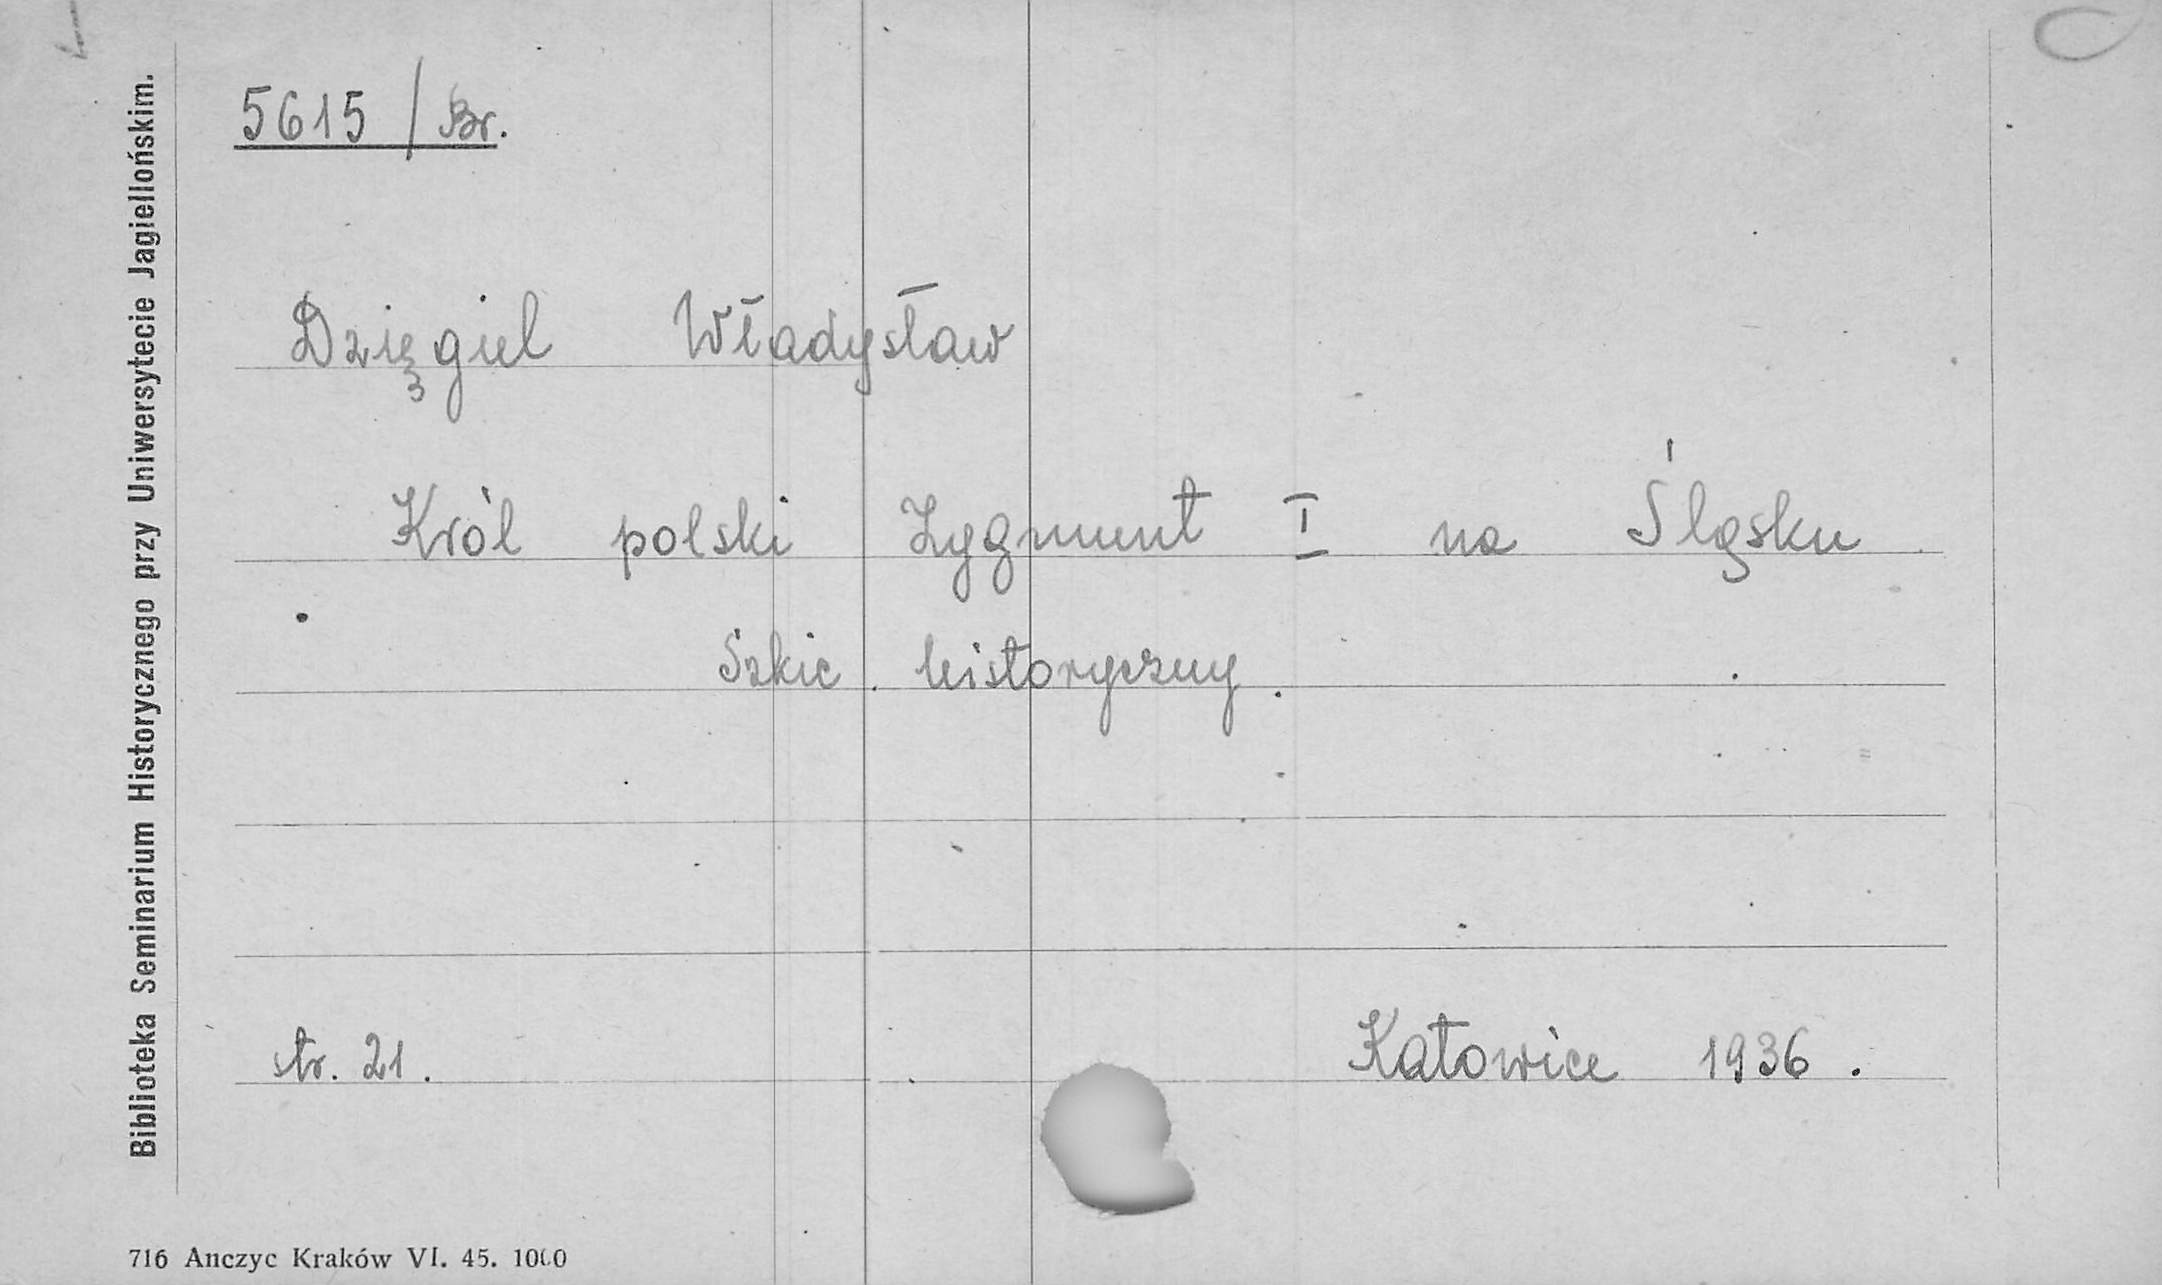 5615 / Br.
Dzięgiel Władysław
Król polski Zygmunt I na Śląsku
Szkic historyczny.
str. 21.
Katowice 1936.
Biblioteka Seminarium Historycznego przy Uniwersytecie Jagiellońskim.
716 Anczyc Kraków VI. 45. 1000